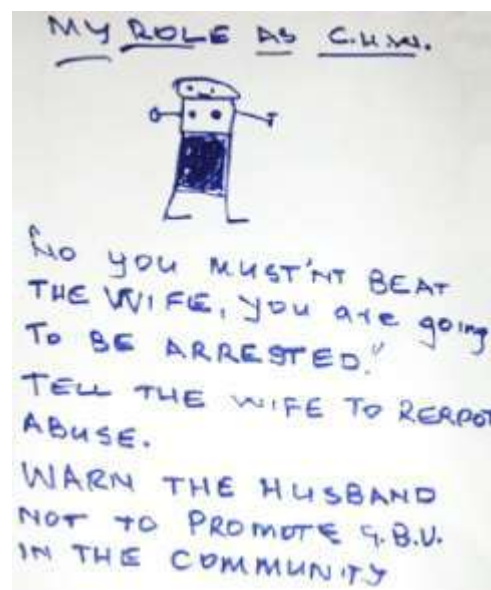 MY ROLE AS C.H.W.
"NO YOU MUST'NT BEAT
THE WIFE, you are going
To BE ARRESTED."
TELL THE WIFE TO RERPOT
ABUSE.
WARN THE HUSBAND
NOT TO PROMOTE G.B.V.
IN THE COMMUNITY